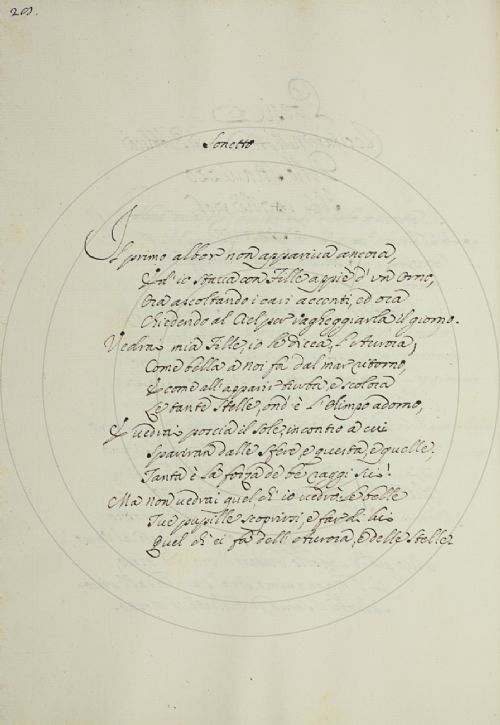 209.
Sonetto
Il primo albor non appariva ancora,
Ed io stava con Fille appiè d'un Orno,
Ora ascoltando i cari accenti, ed ora
Chiedendo al Ciel per vagheggiarla il giorno.
Vedrai mia Fille, io le dicea, l'Aurora,
Come bella a noi fa dal mar ritorno,
E come all'apparir turba, e scolora
Le tante Stelle, ond'è l'Olimpo adorno,
E vedrai poscia il Sole, incontro a cui
Spariran dalle Sfere, e questa, e quelle.
Tanta è la forza de be' raggi sui!
Ma non vedrai quel, ch'io vedrò, le belle
Tue pupille scoprirsi, e far di lui
Quel ch'ei fa dell'Aurora, e delle Stelle.